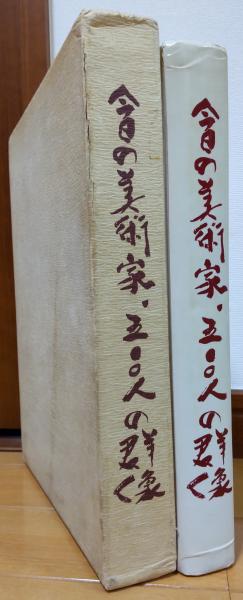 今日の美術家・五〇〇人の群像
今日の美術家・五〇〇人の群像